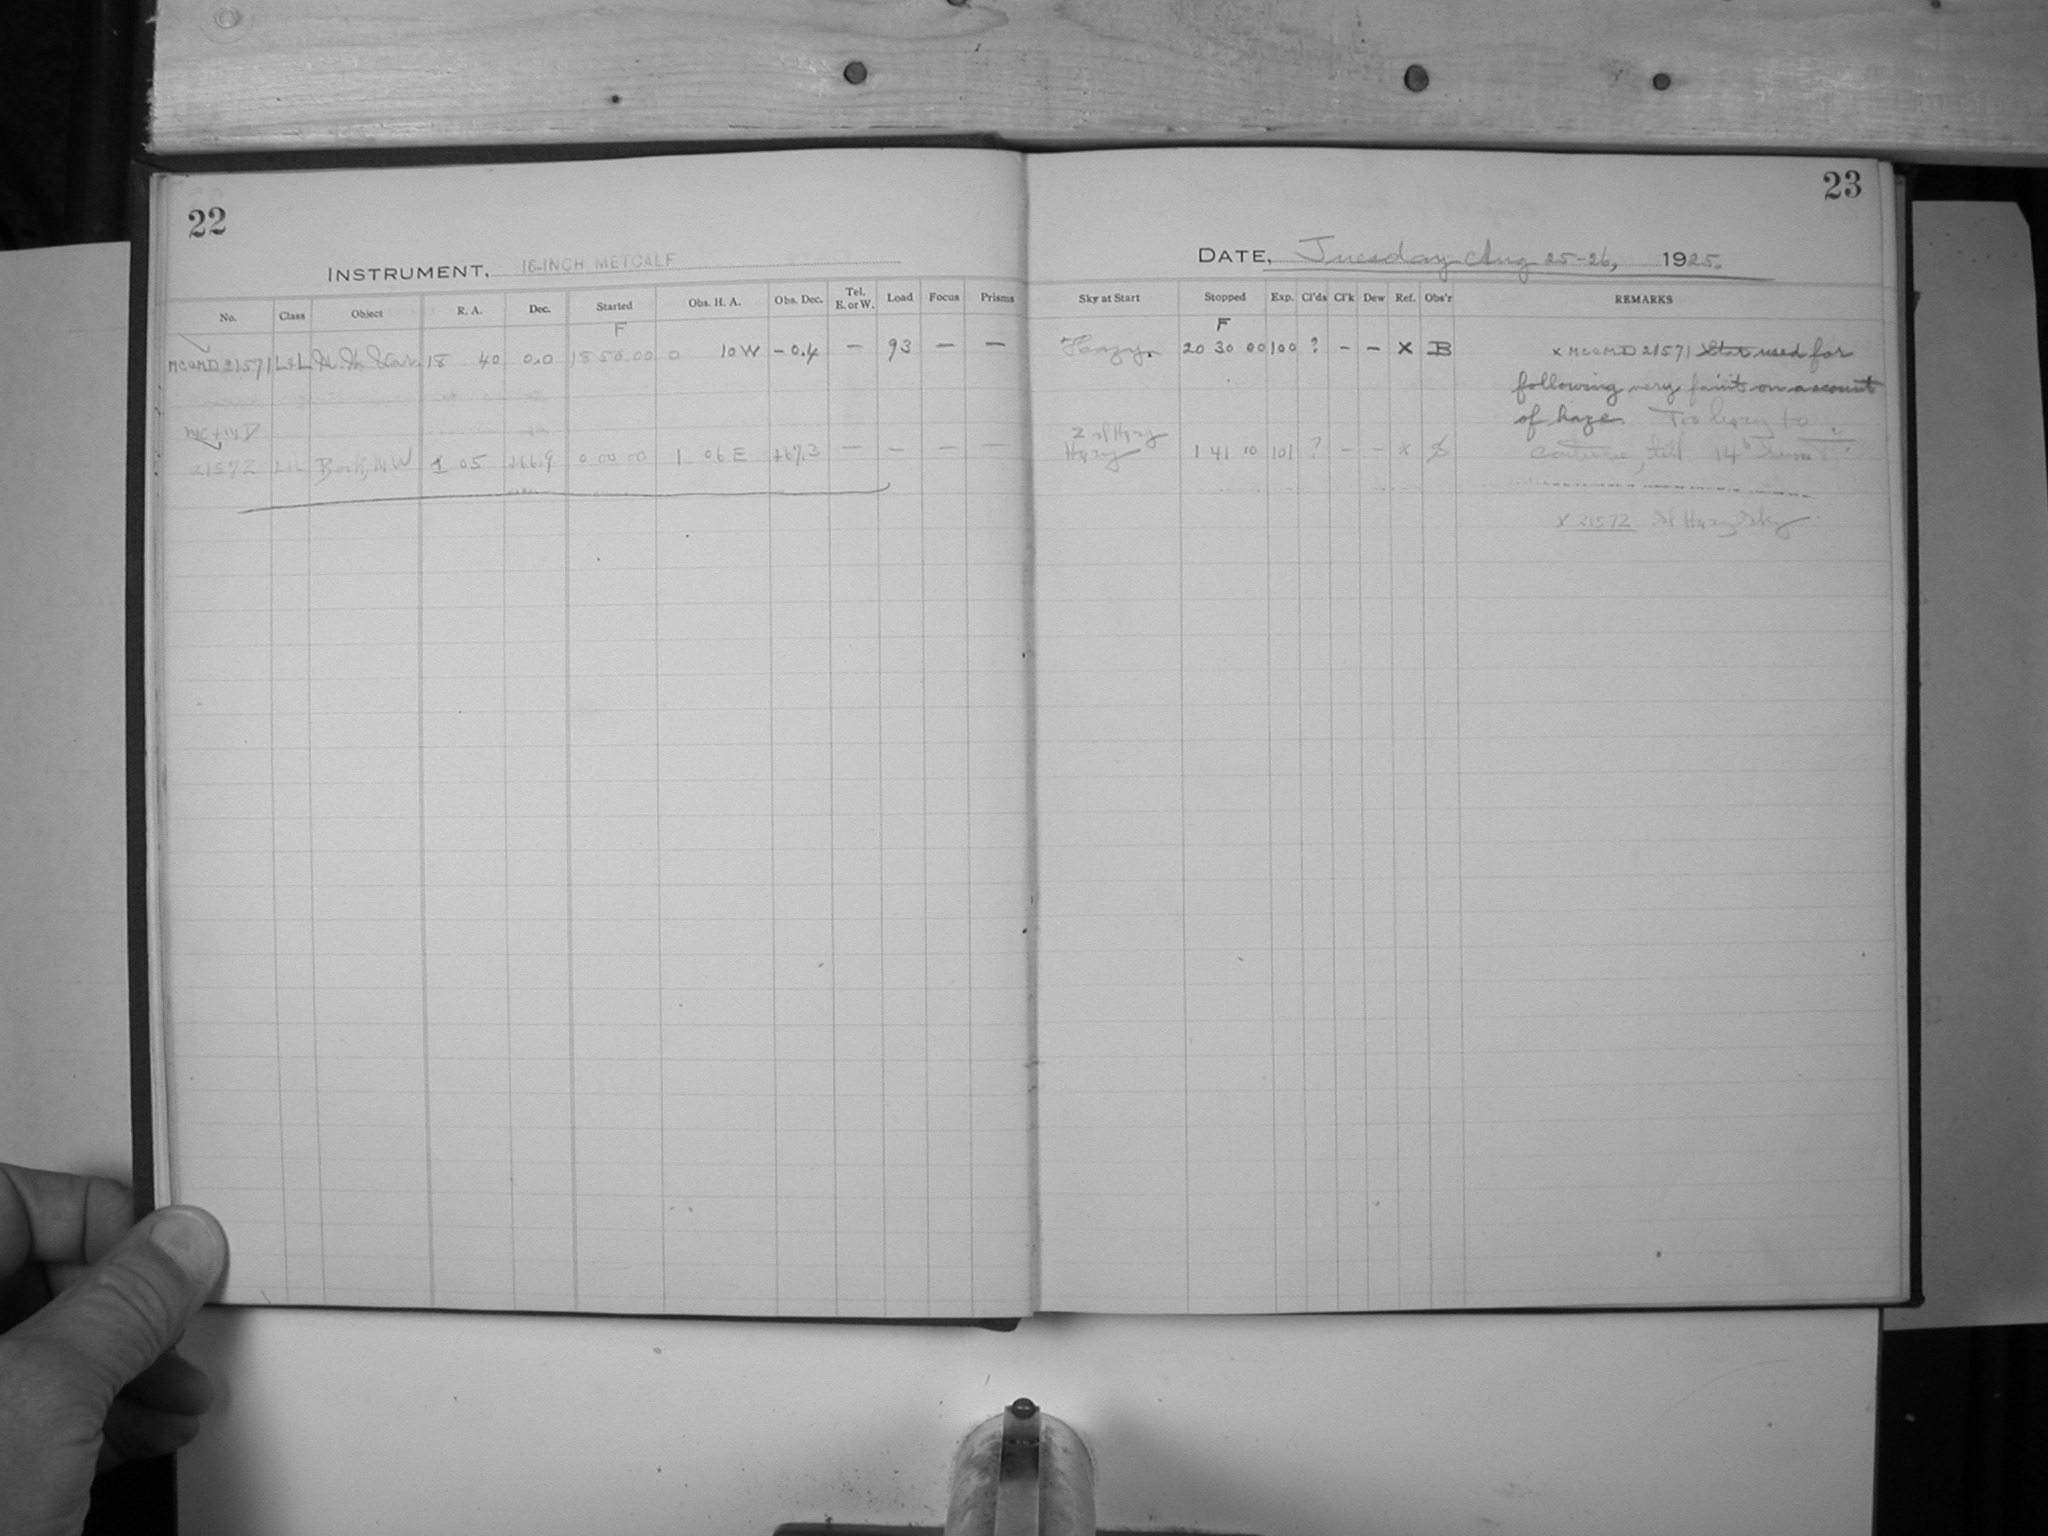 22
INSTRUMENT, 16-INCH METCALF
No. Class Object R. A. Dec. Started Obs. H. A. Obs. Dec. Tel. E. or W. Load Focus Prisms
F
MCQMD21571 L+L 18 40 0.0 18 50 00 0 10 W -0.4 — 93 — —
21572 L+L 1 05 +66.9 0 00 00 1 06 E +67.3 — — — —
23
DATE, Tuesday Aug 25-26, 1925.
Sky at Start Stopped Exp. Cl'ds Cl'k Dew Ref. Obs'r REMARKS
F
Hazy. 20 30 00 100 ? - - X B x MCQMD21571 Star used for
following very faint on account
of haze. Too hazy to
Hazy 1 41 10 101 ? - - x continue, till 14h
x 21572 Sl Hazy Sky